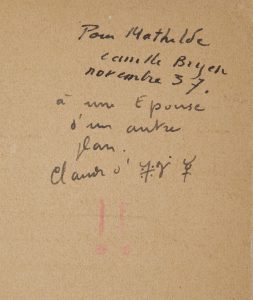 Pour Mathilde
Camille Bryen
novembre 37.
à une Epouse
d'un autre
plan.
Claude d'
!!